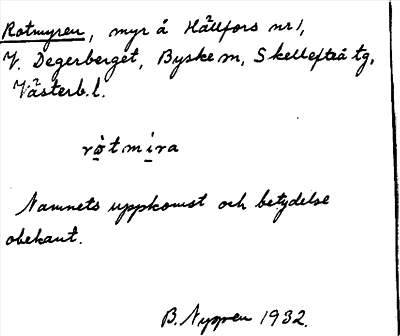 Rotmyren, myr å Hällfors nr 1,
V. Degerberget, Byske sn, Skellefteå tg,
Västerb. l.
rò̱tmi̱ra
Namnets uppkomst och betydelse
obekant.
B. Nyppen 1932.